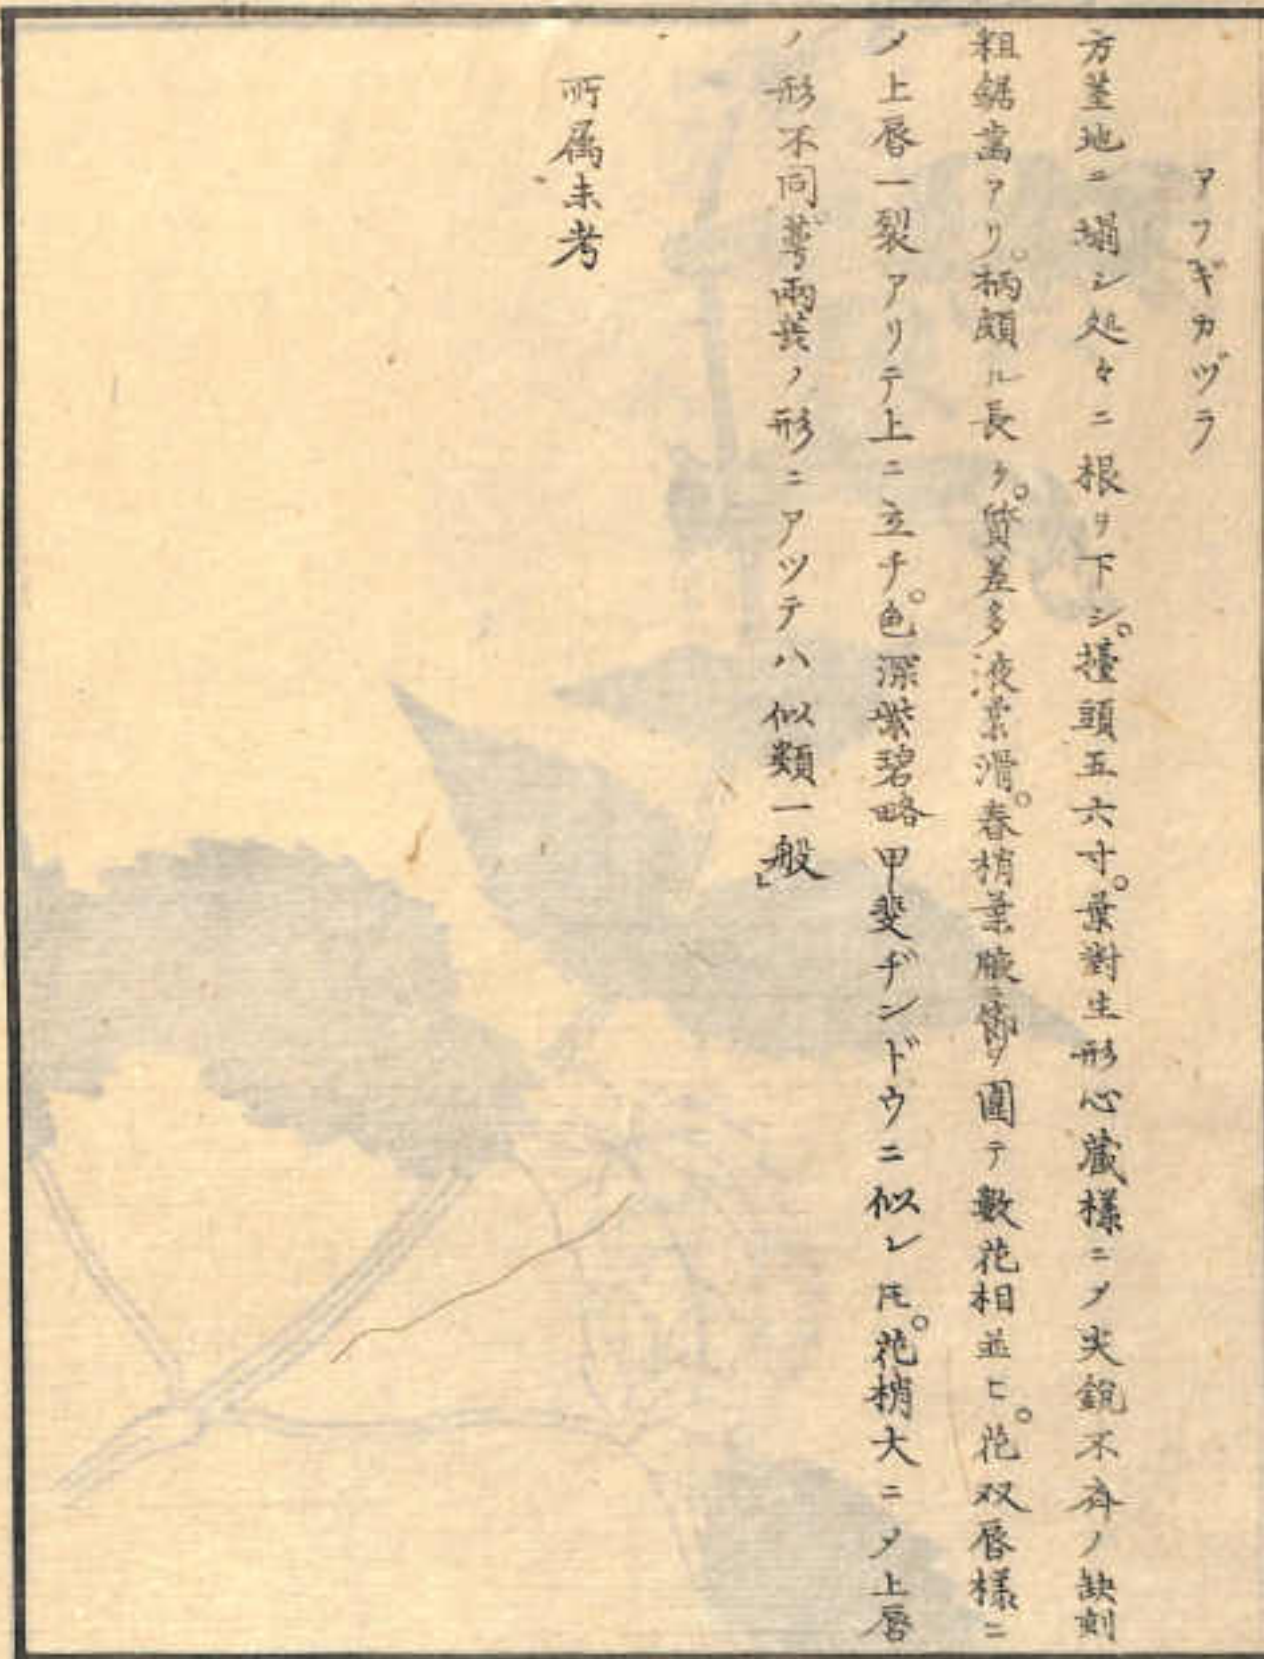 アフギカヅラ
方茎地ニ塌シ処々ニ根ヲ下シ。擡頭五六寸。葉對生形心蔵様ニ〆尖鋭不斉ノ缺刻
粗鋸歯アリ。柄頗ル長ク。質差多液柔滑。春梢葉腋ニ節ヲ圍テ數花相並ヒ。花双唇様ニ
〆上唇一裂アリテ上ニ立チ。色深紫碧略甲斐ヂンドウニ似レ𪜈。花梢大ニ〆上唇
ノ形不同萼兩蕊ノ形ニアツテハ似類一般」
所属未考